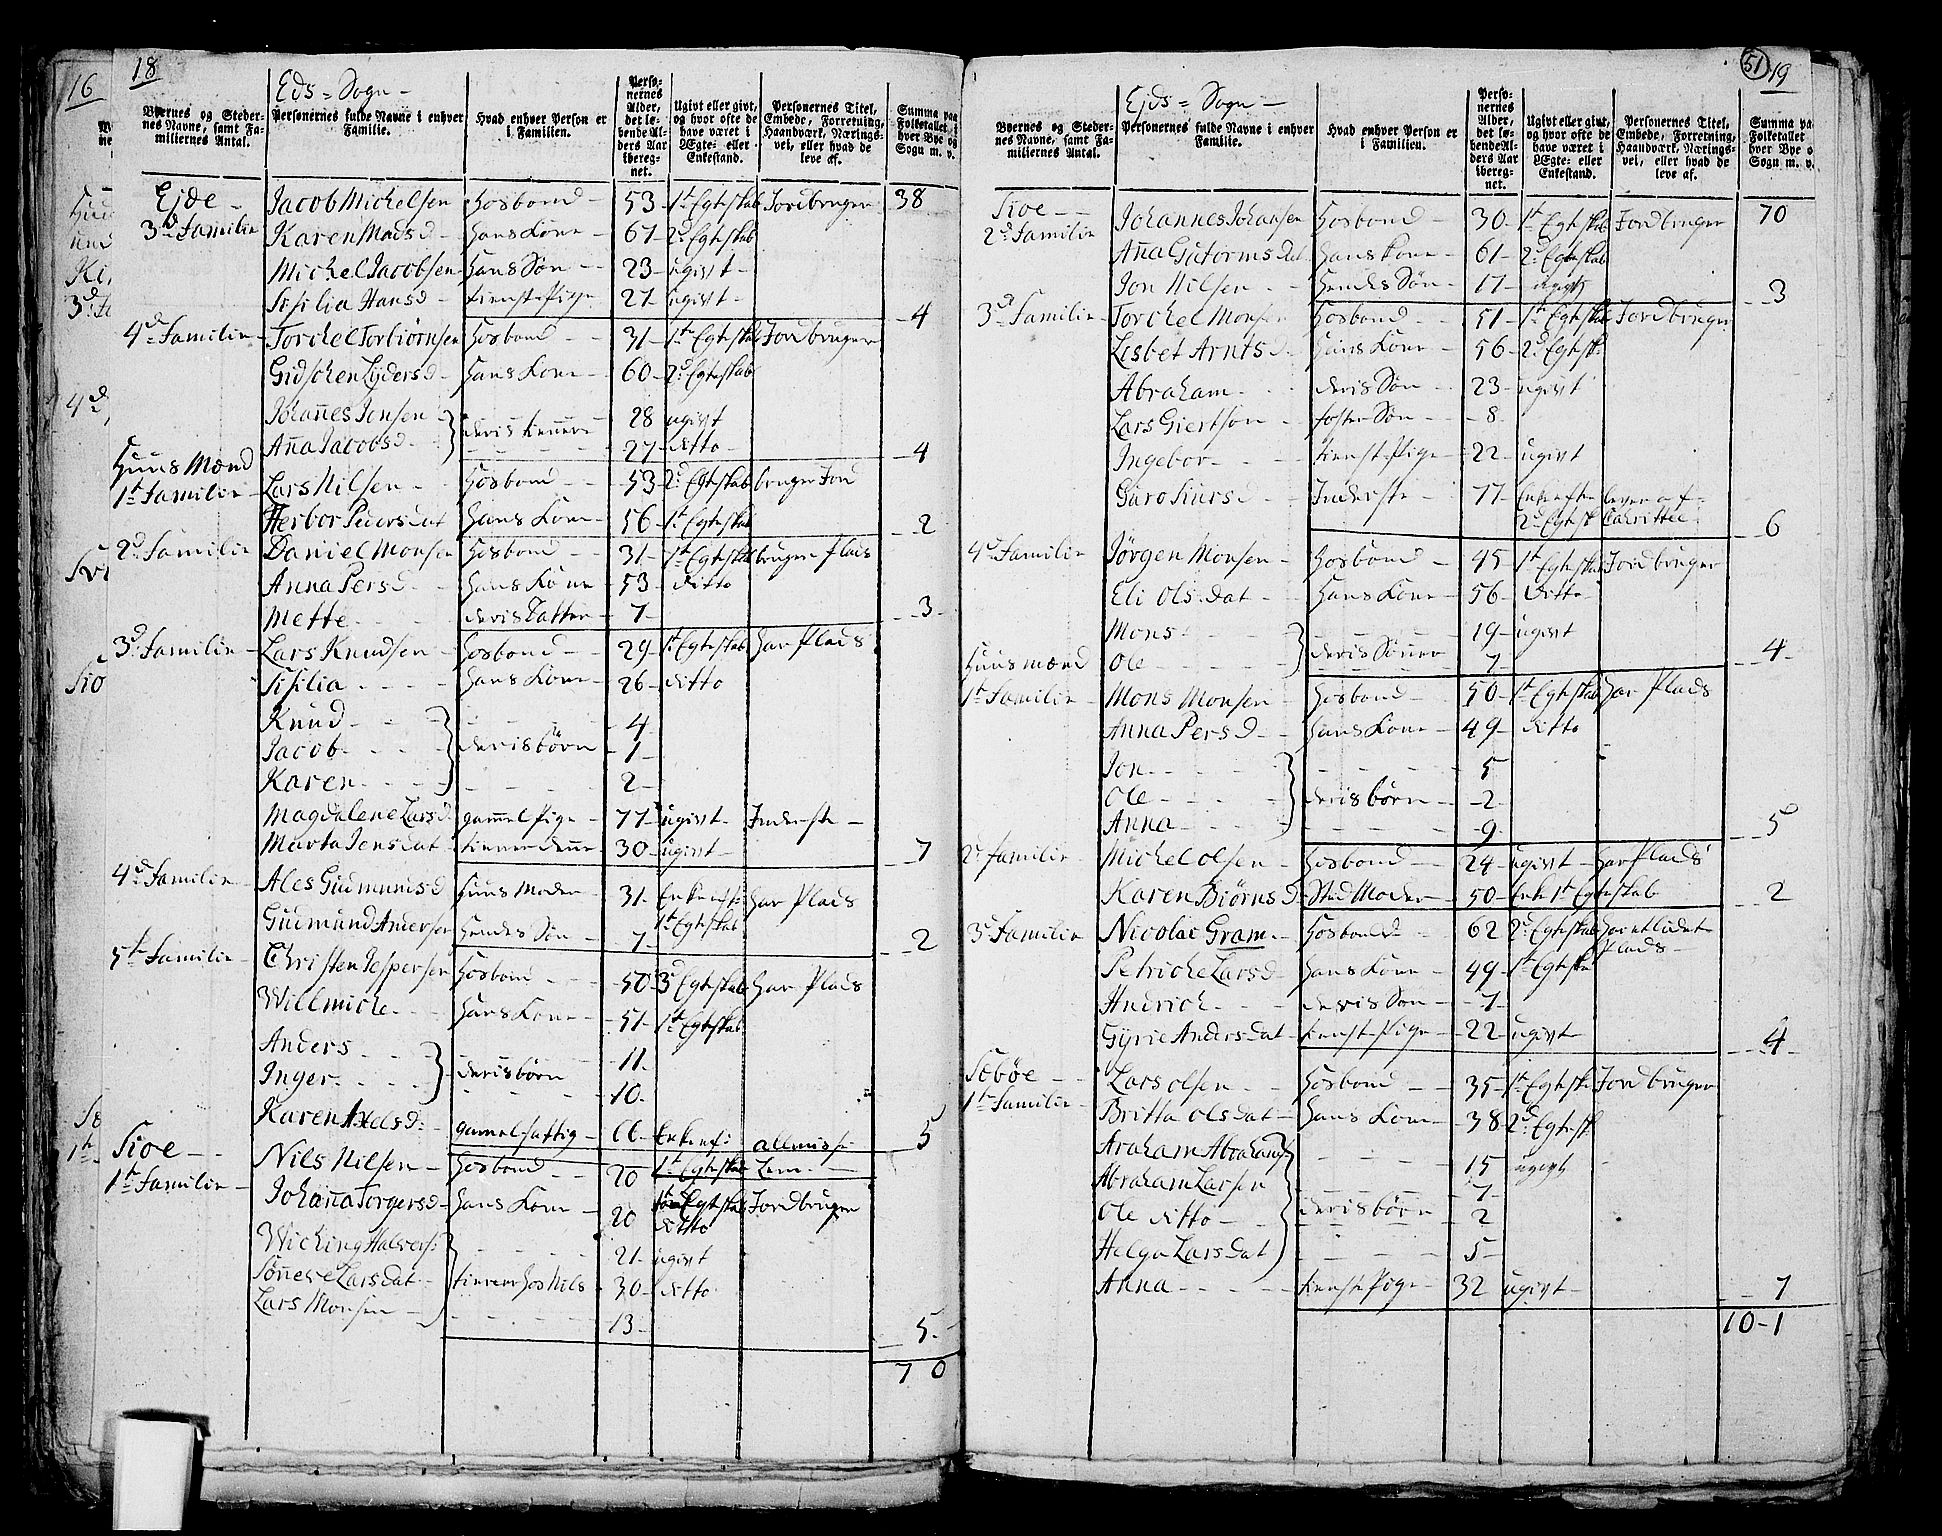 16
18
Eds = Sogn -
Byernes og Steder-
nes Navne, samt Fa-
miliernes Antal.
Personernes fulde Navne i enhver
Familie.
Hvad enhver Person er
i Familien.
Perso-
nernes
Alder,
det lø-
bende Al-
ders Aar
ibereg-
net.
Ugivt eller givt,
og hvor ofte de
have været i
Ægte- eller
Enkestand.
Personernes Titel,
Embede, Forretning,
Haandværk, Nærings-
vei, eller hvad de
leve af.
Summa paa
Folketallet i
hver Bye og
Sogn m. v.
Ejde - Jacob Michelsen Hosbond - 53 - 1t Egteskab Jordbruger 38
3d Familie Karen Mads d Hans Kone - 67 - 2d Egteskab
Michel Jacobsen Hans Søn - - 23 - ugivt -
Sisilia Hans d - tienste Pige 27 ugivt - 4
4d Familie - Torchel Torbiörnsen Hosbond - 31 - 1t Egteskab Jordbruger
Gidschen Lÿders d - Hans Kone - 60 - 2d Egteskab
Johannes Jensen 28 ugivt
Anna Jacobs d - } deris tienere 27 - ditto - 4
Huus Mænd
1t Familie - Lars Nilsen - - Hosbond - - 53 - 2d Egteskab bruger Jord
Herbor Peders dat Hans Kone - 56 - 1t Egteskab 2
2d Familie Daniel Monsen Hosbond - - 31 - 1t Egteskab bruger Plads
Anna Pers d - Hans Kone - 53 - ditto
Mette - - deris Datter - 7 - 3 -
3d Familie - Lars Knudsen - Hosbond - - 29 - 1t Egteskab har Plads
Sisilia - - - - Hans Kone - 26 - ditto
Knud - - - 4
Jacob - - - } deris børn - 1 -
Karen - - - 2 -
Magdalene Lars d gammel Pige - 77 - ugivt - Inderste -
Marta Jens dat - tiener dem 30 - ugivt - 7
4d Familie - Ales Gudmunds d Huus Moder - 31 - Enke efter 1t Egteskab har Plads
Gudmund Andersen Hendes Søn - 7 - 2
5te Familie - Christen Jespersen Hosbond - - - 50 - 3d Egteskab har Plads
Willmiche - - Hans Kone - - 51 - 1t Egteskab
Anders - - - 11 -
Inger - - - } deris børn 10 -
Karen Axels d: gammel fattig - 66 - Enke ef: allmisse 5
1t Egteskab Lem -
Sioe - - Nils Nilsen - Hosbond - 20
1t Familie - Johanna Torgers d - Hans Kone - 20 Egteskab Jordbruger
ditto
Wiching Halvers: 21 - ugivt
Sönneve Lars dat - } tienere hos Nils - 30 - ditto
Lars Monsen - 13 - 5 -
7 0
51 19
Ejds = Sogn -
Byernes og Steder-
nes Navne, samt Fa-
miliernes Antal.
Personernes fulde Navne i enhver
Familie.
Hvad enhver Person er
i Familien.
Perso-
nernes
Alder,
det lø-
bende Al-
ders Aar
ibereg-
net.
Ugivt eller givt,
og hvor ofte de
have været i
Ægte- eller
Enkestand.
Personernes Titel,
Embede, Forretning,
Haandværk, Nærings-
vei, eller hvad de
leve af.
Summa pa
Folketallet
hver Bye o
Sogn m. v.
Sioe - - Johannes Johansen Hosbond - - 30 - 1t Egteskab Jordbruger 70
2d Familie Anna Gutorms dat Hans Kone - 61 - 2d Egteskab
Jon Nilsen - - Hendes Søn - 17 - ugivt 3
3d Familie - Torchel Monsen Hosbond - - 51 - 1t Egteskab Jordbruger
Lisbet Arnts d - Hans Kone - 56 - 2d Egtesk:
Abraham - - deris Søn - 23 - ugivt
Lars Giertson - - foster Søn - - 8 -
Ingebor - - - tienste Pige - 22 - ugivt
Guro Siurs d - - Inderste - 77 - Enke efter lever af
2d Egtesk 6
4d Familie Jörgen Monsen - Hosbond - 45 1t Egteskab Jordbruger
Eli Ols dat - Hans Kone - 56 - ditto -
Mons - - - 19 - ugivt
Huus mænd Ole - - - } deris Sönner 7 - 4 -
1t Familie - Mons Monsen - Hosbond - 50 - 1t Egteskab har Plads
Anna Pers d - Hans Kone - 49 - ditto
Jon - - - 5
Ole - - - } deris børn - - 2 -
Anna - - - 9 - 5
2d familie Michel Olsen - Hosbond - 24 - ugivt - har Plads
Karen Biörns d - Sted Moder - 50 - Enke 1t Egteskab 2
3d Familie - Nicolai Gram - Hosbond - 62 2d Egteskab har et lidet
Plads -
Petriche Lars d - Hans Kone - 49 - 1t Egteskab
Hndrich - - deris Søn - - 7 -
Gÿrie Anders dat tienste Pige - 22 - ugivt - 4 -
Sæbøe - - Lars Olsen - - Hosbond - 35 - 1t Egtesk Jordbruger
1t Familie - Britta Ols dat - Hans Kone - 38 - 2d Egtesk
Araham Abrahams 15 ugigt
Abraham Larsen - 7 -
Ole ditto - - } deris børn - 2
Helga Lars dat 5 -
Anna - - - - tienste Pige - 32 ugivt - - - 7
10 - 1